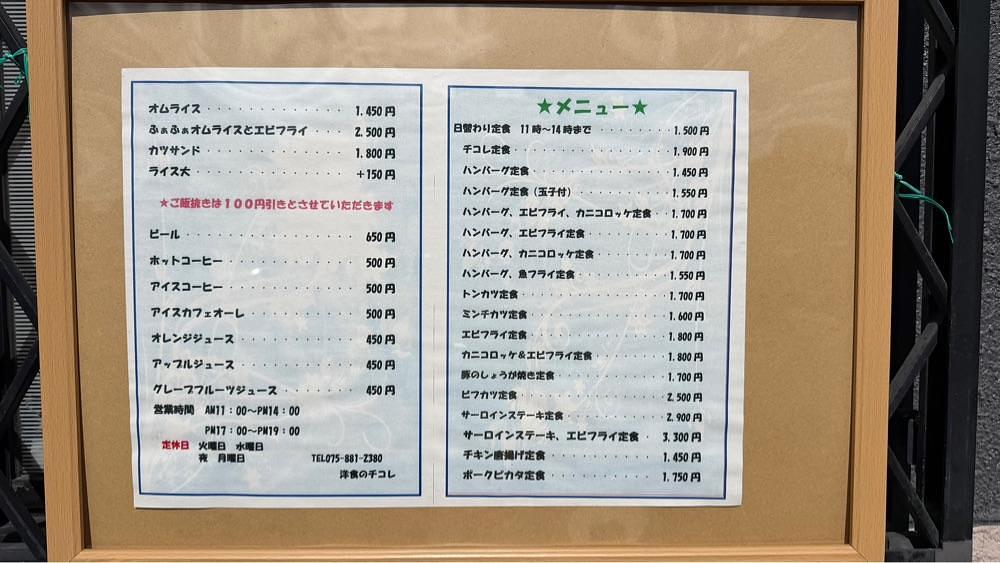 オムライス ・・・・・・・・・・・ 1.450円
ふぁふぁオムライスとエビフライ ・・・ 2.500円
カツサンド ・・・・・・・・・・・ 1.800円
ライス大 ・・・・・・・・・・・・ +150円
★ご飯抜きは100円引きとさせていただきます
ビール ・・・・・・・・・・・・・ 650円
ホットコーヒー ・・・・・・・・・ 500円
アイスコーヒー ・・・・・・・・・ 500円
アイスカフェオーレ ・・・・・・・ 500円
オレンジジュース ・・・・・・・・ 450円
アップルジュース ・・・・・・・・ 450円
グレープフルーツジュース ・・・・・ 450円
営業時間 AM11:00〜PM14:00
PM17:00〜PM19:00
定休日 火曜日 水曜日
夜 月曜日 TEL075-881-2380
洋食のチコレ
★メニュー★
日替わり定食 11時〜14時まで ・・・・・・・・ 1.500円
チコレ定食 ・・・・・・・・・・・・ 1.900円
ハンバーグ定食 ・・・・・・・・・・ 1.450円
ハンバーグ定食(玉子付) ・・・・・・・ 1.550円
ハンバーグ、エビフライ、カニコロッケ定食 ・・ 1.700円
ハンバーグ、エビフライ定食 ・・・・・・ 1.700円
ハンバーグ、カニコロッケ定食 ・・・・・ 1.700円
ハンバーグ、魚フライ定食 ・・・・・・・ 1.550円
トンカツ定食 ・・・・・・・・・・・ 1.700円
ミンチカツ定食 ・・・・・・・・・・ 1.600円
エビフライ定食 ・・・・・・・・・・ 1.800円
カニコロッケ&エビフライ定食 ・・・・・ 1.800円
豚のしょうが焼き定食 ・・・・・・・・ 1.700円
ビフカツ定食 ・・・・・・・・・・・ 2.500円
サーロインステーキ定食 ・・・・・・・ 2.900円
サーロインステーキ、エビフライ定食 ・ 3.300円
チキン唐揚げ定食 ・・・・・・・・・ 1.450円
ポークピカタ定食 ・・・・・・・・・ 1.750円